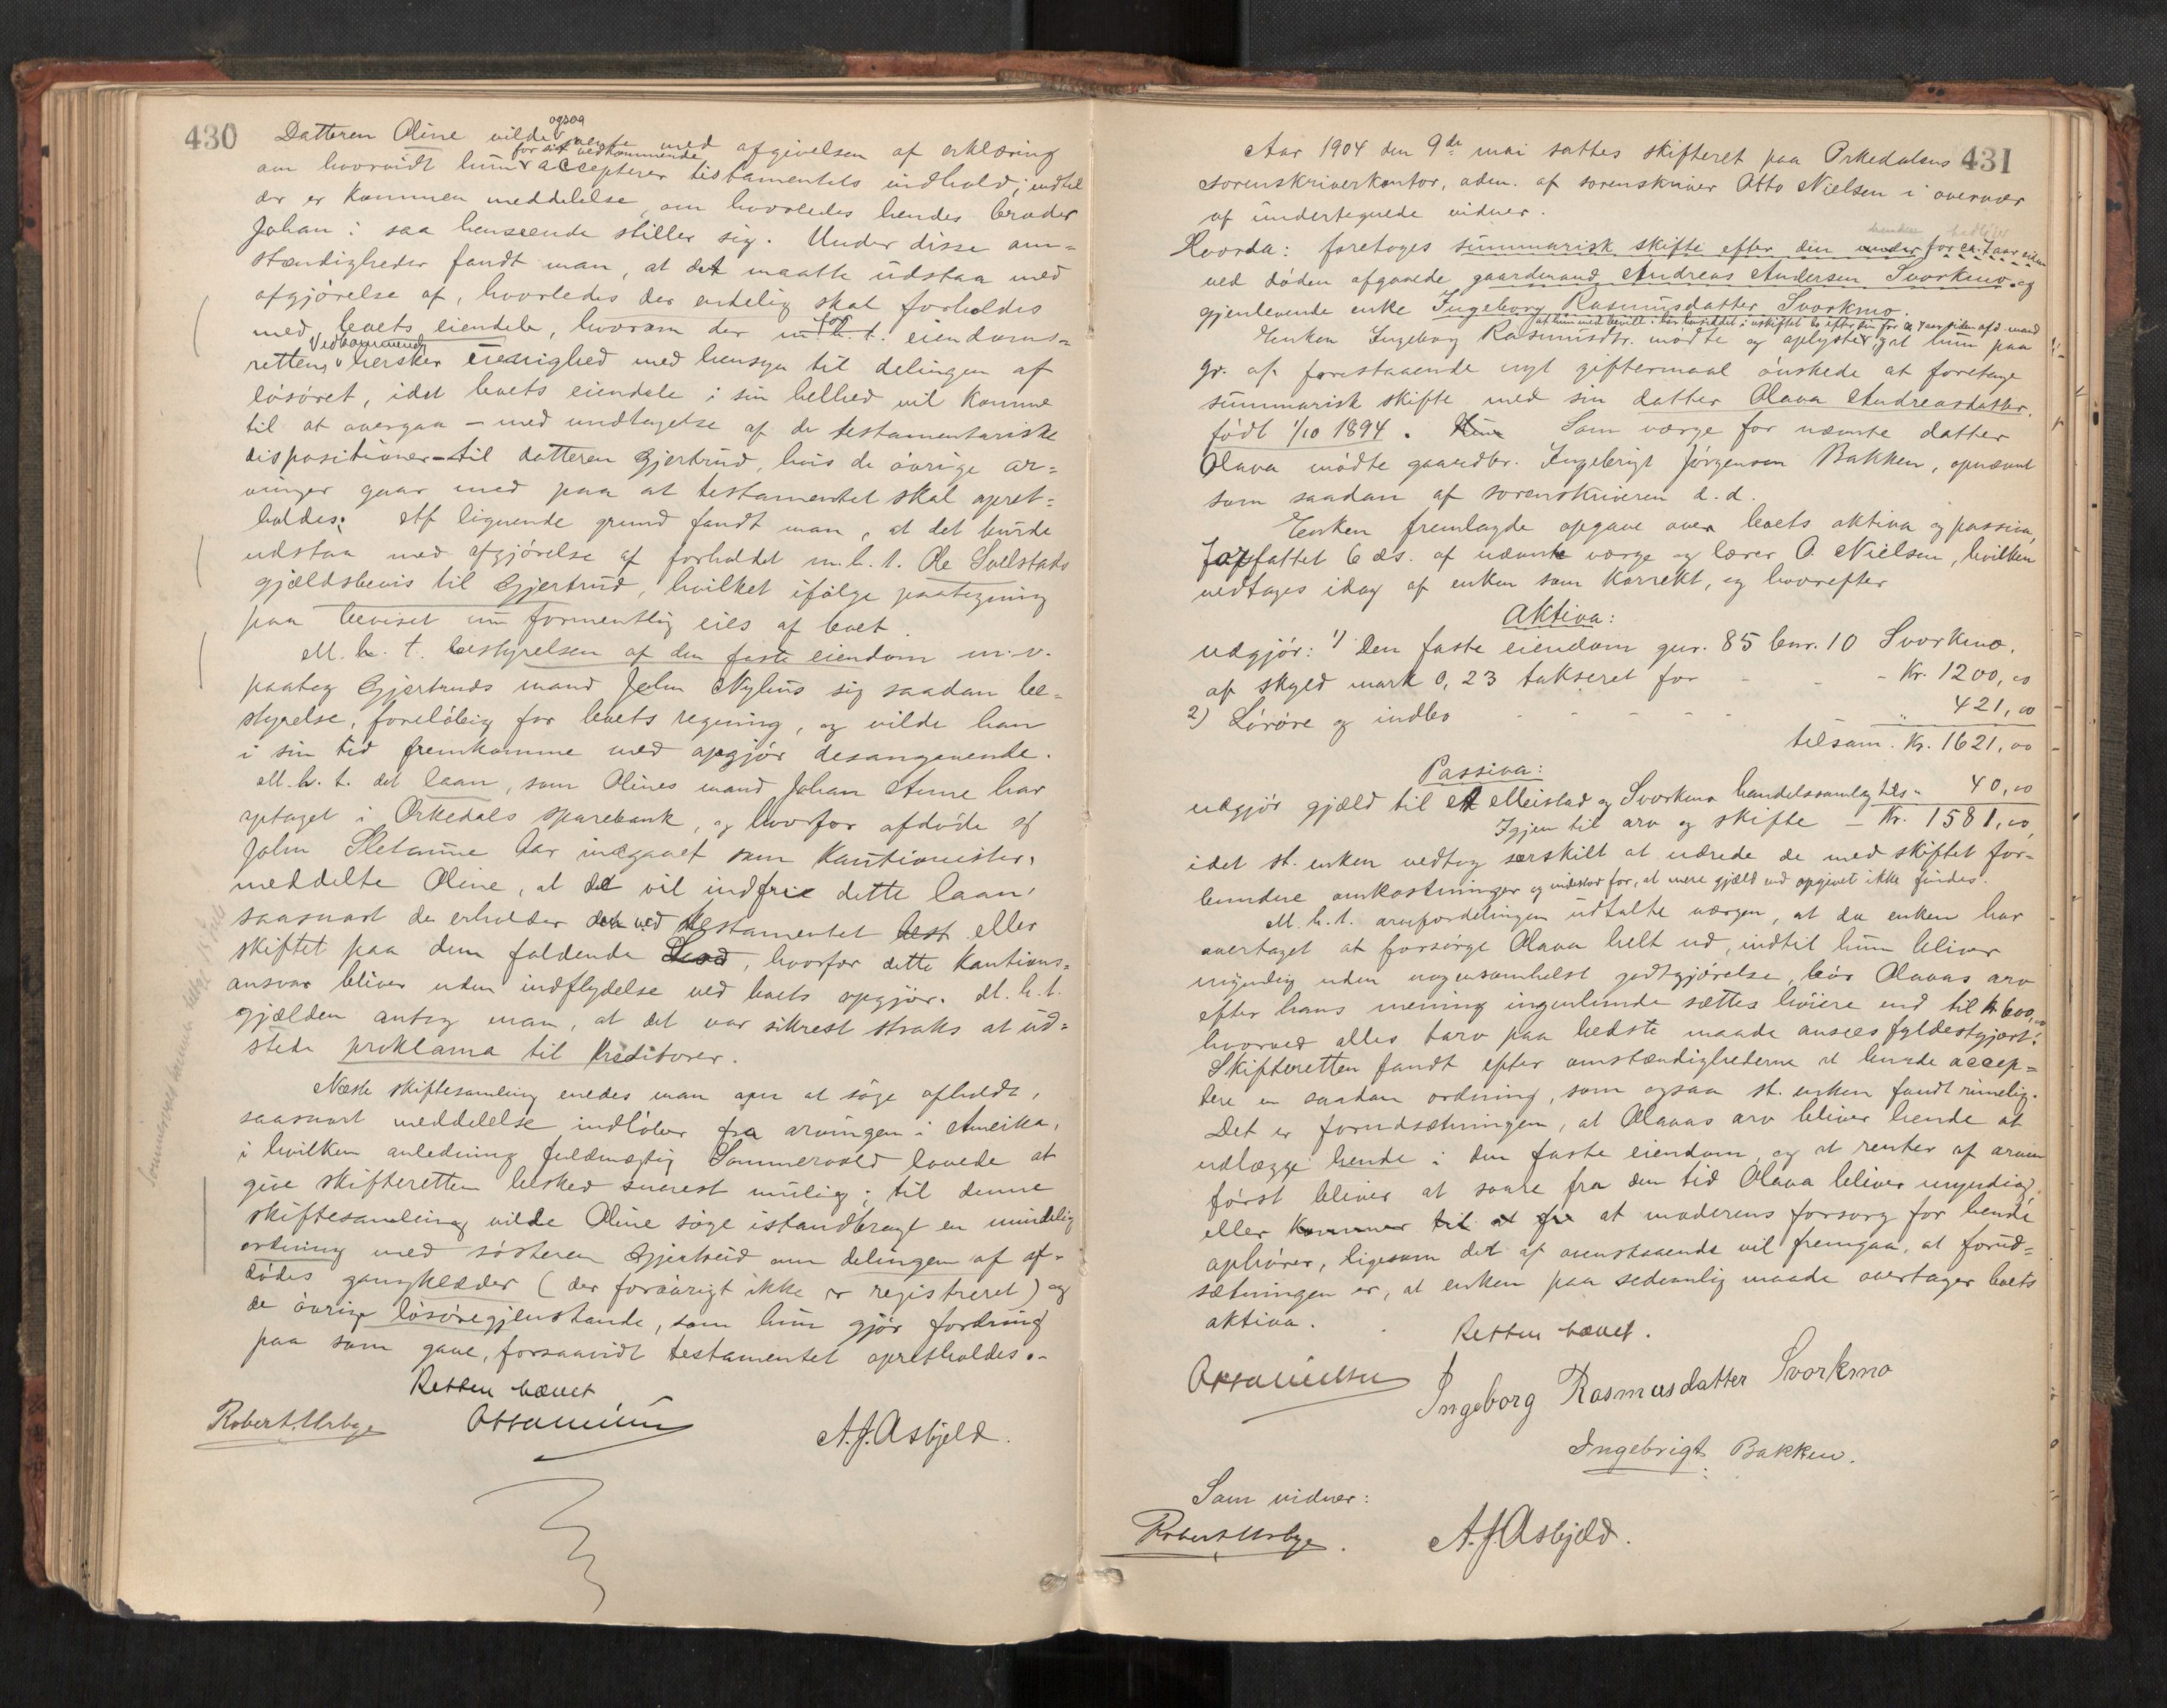 430
Datteren Oline vilde ogsaa vente med afgivelsen af erklæring
om hvorvidt hun for sit vedkommende accepterer testamentets indhold, indtil
der er kommen meddelelse om hvorledes hendes broder
Johan i saa henseende stiller sig. Under disse om=
stændigheder fandt man, at det maatte udstaa med
afgjörelse af, hvorledes der endelig skal forholdes
med boets eiendele, hvorom der m. h. t. eiendoms=
rettens vedkommende hersker uenighed med hensyn til delingen af
lösöret, idet boets eiendele i sin helhed vil komme
til at overgaa – med undtagelse af de testamentariske
dispositioner – til datteren Gjertrud, hvis de övrige ar=
vinger gaar med paa at testamentet skal opret=
holdes. Af lignende grund fandt man, at det burde
udstaa med afgjörelse af forholdet m. h. t. Ole Solstads
gjældsbevis til Gjertrud, hvilket ifölge paategning
paa beviset nu formentlig eies af boet.
M. h. t. bestyrelsen af den faste eiendom m. v.
paatog Gjertruds mand John Nyhus sig saadan be=
styrelse, forelöbig for boets regning, og vilde han
i sin tid fremkomme med opgjör desangaaende.
M. h. t. det laan, som Olines mand Johan Aune har
optaget i Orkedals sparebank, og hvorfor afdöde og
John Sletaune har indgaaet som kautionister,
meddelte Oline, at de vil indfrie dette laan,
saasnart de erholder den ved testamentet best eller
skiftet paa dem faldende Lod, hvorfor dette kautions=
ansvar bliver uden indflydelse ved boets opgjör. M. h. t.
gjælden antog man, at det var sikrest straks at ud=
stede proklama til kreditorer.
Næste skiftesamling enedes man om at söge afholdt,
saasnart meddelelse indlöber fra arvingen i Amerika,
i hvilken anledning fuldmægtig Sommervold lovede at
give skifteretten besked snarest mulig; til denne
skiftesamling vilde Oline söge istandbragt en mindelig
ordning med sösteren Gjertrud om delingen af af=
dödes gangklæder (der forövrigt ikke er registreret) og
de övrige lösöregjenstande, som hun gjör fordring
paa som gave, forsaavidt testamentet opretholdes.-
Retten hævet
Robert Urbye Otto Nielsen A. J. Asbjeld.
431
Aar 1904 den 9de mai sattes skifteret paa Orkedalens
sorenskriverkontor, adm. af sorenskriver Otto Nielsen i overvær
af undertegnede vidner.
Hvorda: foretoges summarisk skifte efter den under for ca. 7 aar siden
ved döden afgaaede gaardmand Andreas Andersen Svorkmo og
gjenlevende enke Ingeborg Rasmusdatter Svorkmo.
Enken Ingeborg Rasmusdtr. mödte og oplyste, at hun paa
gr. af forestaaende nyt giftermaal önskede at foretage
summarisk skifte med sin datter Olava Andreasdatter,
födt 1/10 1894. Hun Som værge for nævnte datter
Olava mödte gaardbr. Ingebrigt Jörgensen Bakken, opnævnt
som saadan af sorenskriveren d. d.
Enken fremlagde opgave over boets aktiva og passiva,
forfattet 6 ds. af nævnte værge og lærer O. Nielsen, hvilken
vedtages idag af enken som korrekt, og hvorefter
Aktiva:
udgjör: 1) Den faste eiendom gnr. 85 bnr. 10 Svorkmo,
af skyld mark 0,23 takseret for - - - Kr. 1200,00
2) Lösöre og indbo - - - - - " 421,00
tilsam. Kr. 1621,00
Passiva:
udgjör gjæld til Meistad og Svorkmo handelssamlag tils " 40,00
Igjen til arv og skifte – Kr. 1581,00,
idet st. enken vedtog særskilt at udrede de med skiftet for=
bundne omkostninger og indestod for, at mere gjæld end opgivet ikke findes.
M. h. t. arvefordelingen udtalte værgen, at da enken har
overtaget at forsörge Olava helt ud, indtil hun bliver
myndig uden nogensomhelst godtgjörelse, bör Olavas arv
efter hans mening ingenlunde sættes höiere end til Kr 600,00
hvorved alles tarv paa bedste maade ansees fyldestgjort.
Skifteretten fandt efter omstændighederne at burde accep=
tere en saadan ordning, som ogsaa st. enken fandt rimelig.
Det er forudsætningen, at Olavas arv bliver hende at
udlægge hende i den faste eiendom, og at renter af arven
först bliver at svare fra den tid Olava bliver myndig,
eller kommer til at fra at moderens forsorg for hende
ophörer, ligesom det af ovenstaaende vil fremgaa, at forud=
sætningen er, at enken paa sedvanlig maade overtager boets
aktiva.
Retten hævet.
Otto Nielsen Ingeborg Rasmusdatter Svorkmo
Ingebrigt Bakken.
Som vidner:
Robert Urbye. A. J. Asbjeld.